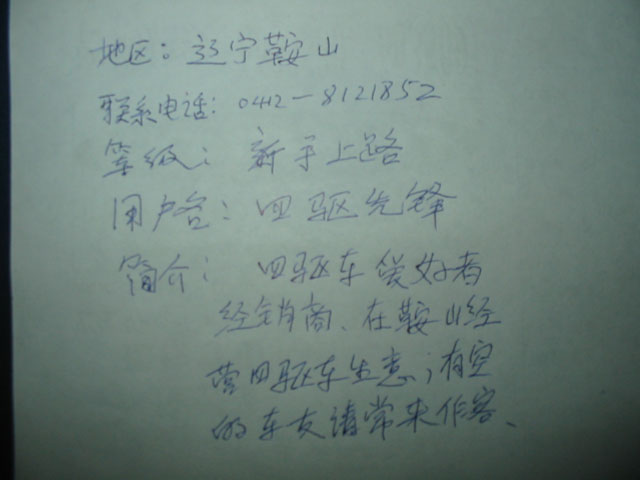 地区：辽宁鞍山
联系电话：0412-8121852
等级：新手上路
用户名：四驱先锋
简介：四驱车爱好者
经销商、在鞍山经
营四驱车生意；有空
的车友请常来作客、